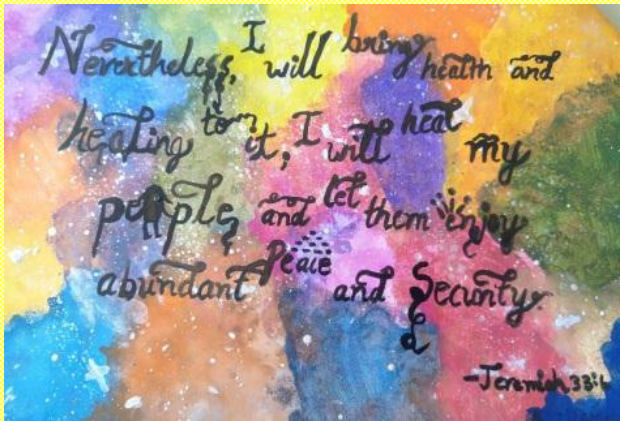 Nevertheless, I will bring health and
healing to it, I will heal my
people and let them enjoy
abundant Peace and Security.
-Jeremiah 33:6